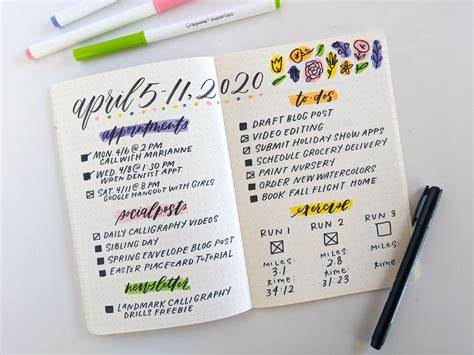 Crayola SuperTips
april 5-11, 2020
appointments
MON 4/6 @ 2 PM
CALL WITH MARIANNE
WED 4/8 @ 1:30 PM
WHEN DENTIST APPT.
SAT 4/11 @ 8 PM
GOOGLE HANGOUT WITH GIRLS
social posts
DAILY CALLIGRAPHY VIDEOS
SIBLING DAY
SPRING ENVELOPE BLOG POST
EASTER PLACECARD TUTORIAL
newsletter
LANDMARK CALLIGRAPHY
DRILLS FREEBIE
to-dos
DRAFT BLOG POST
VIDEO EDITING
SUBMIT HOLIDAY SHOW APPS
SCHEDULE GROCERY DELIVERY
PAINT NURSERY
ORDER NEW WATERCOLORS
BOOK FALL FLIGHT HOME
exercise
RUN 1 RUN 2 RUN 3
MILES: MILES: MILES:
3.1 2.8
time: time: time:
34:12 31:23